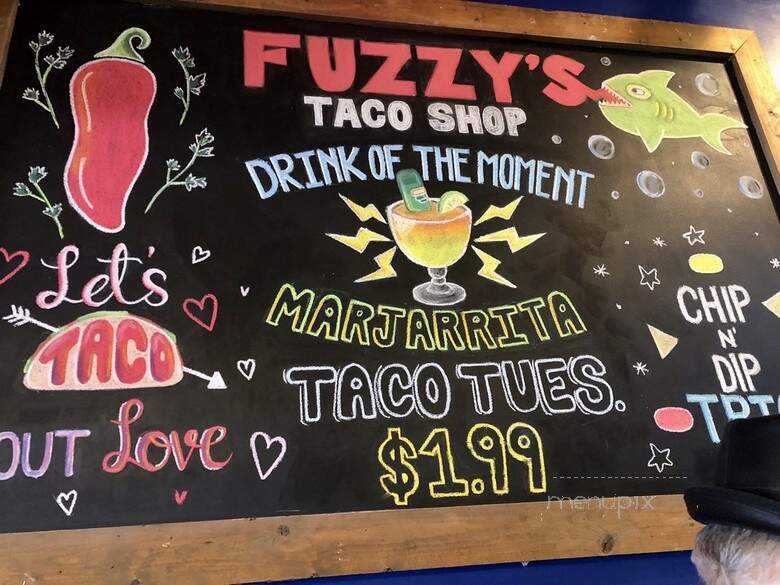 FUZZY'S
TACO SHOP
DRINK OF THE MOMENT
MARJARRITA
TACO TUES.
$1.99
Let's
TACO
OUT Love
CHIP
N'
DIP
menupix